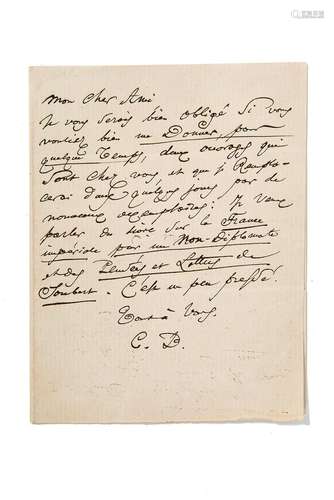 Mon cher Ami
Je vous serais bien obligé si vous
vouliez bien me Donner, pour
quelque Temps, deux ouvrages qui
sont chez vous, et que je Rempla-
cerai dans quelques jours par de
nouveaux exemplaires: Je veux
parler du livre sur la France
impériale par un Non-Diplomate
et des Pensées et Lettres de
Joubert. C'est un peu pressé.
Tout à Vous.
C. B.